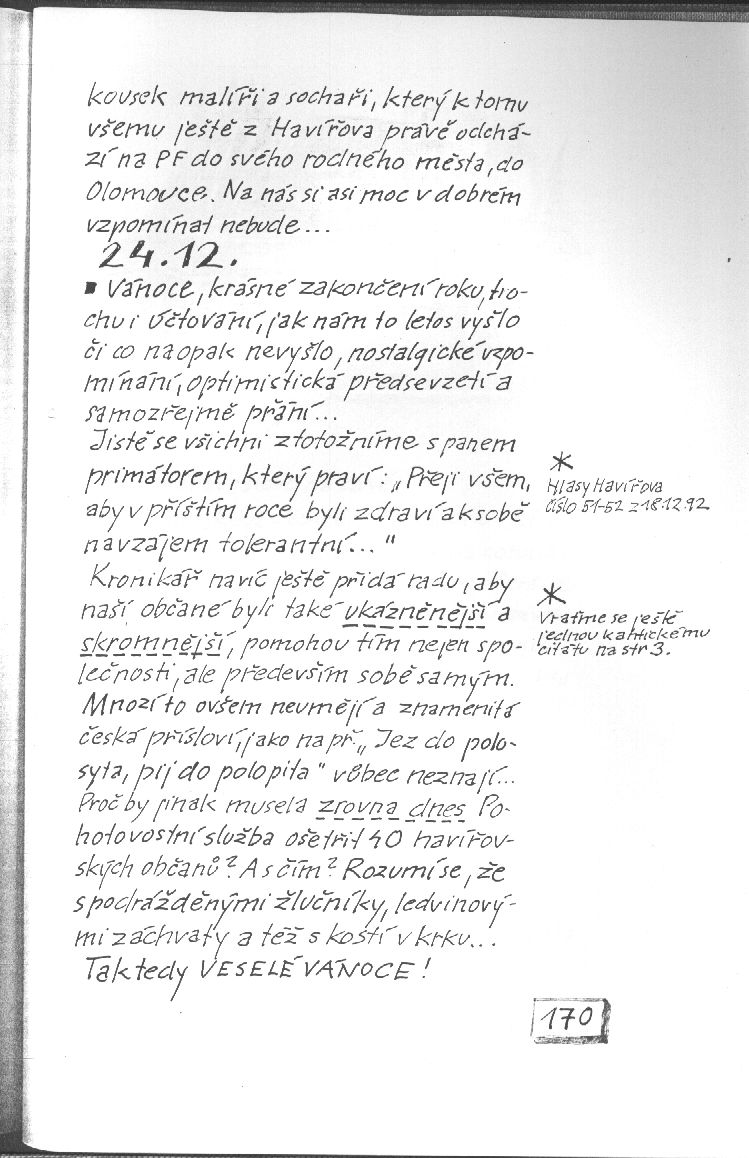 kousek malíři a sochaři, který k tomu
všemu ještě z Havířova právě odchá-
zí na PF do svého rodného města, do
Olomouce. Na nás si asi moc v dobrém
vzpomínat nebude...
24.12.
▪ Vánoce, krásné zakončení roku, tro-
chu i účtování, jak nám to letos vyšlo
či co naopak nevyšlo, nostalgické vzpo-
mínání, optimistická předsevzetí a
samozřejmě přání...
Jistě se všichni ztotožníme s panem
primátorem, který praví: „Přeji všem,
aby v příštím roce byli zdraví a k sobě
navzájem tolerantní..."
*
Hlasy Havířova
číslo 51-52 z 18.12.92
Kronikář navíc ještě přidá radu, aby
naši občané byli také ukázněnější a
skromnější, pomohou tím nejen spo-
lečnosti, ale především sobě samým.
*
Vraťme se ještě
jednou k antickému
citátu na str 3.
Mnozí to ovšem neumějí a znamenitá
česká přísloví, jako např. „Jez do polo-
syta, pij do polopita" vůbec neznají...
Proč by jinak musela zrovna dnes Po-
hotovostní služba ošetřit 40 havířov-
ských občanů? A s čím? Rozumí se, že
s podrážděnými žlučníky, ledvinový-
mi záchvaty a též s kostí v krku...
Tak tedy VESELÉ VÁNOCE!
170